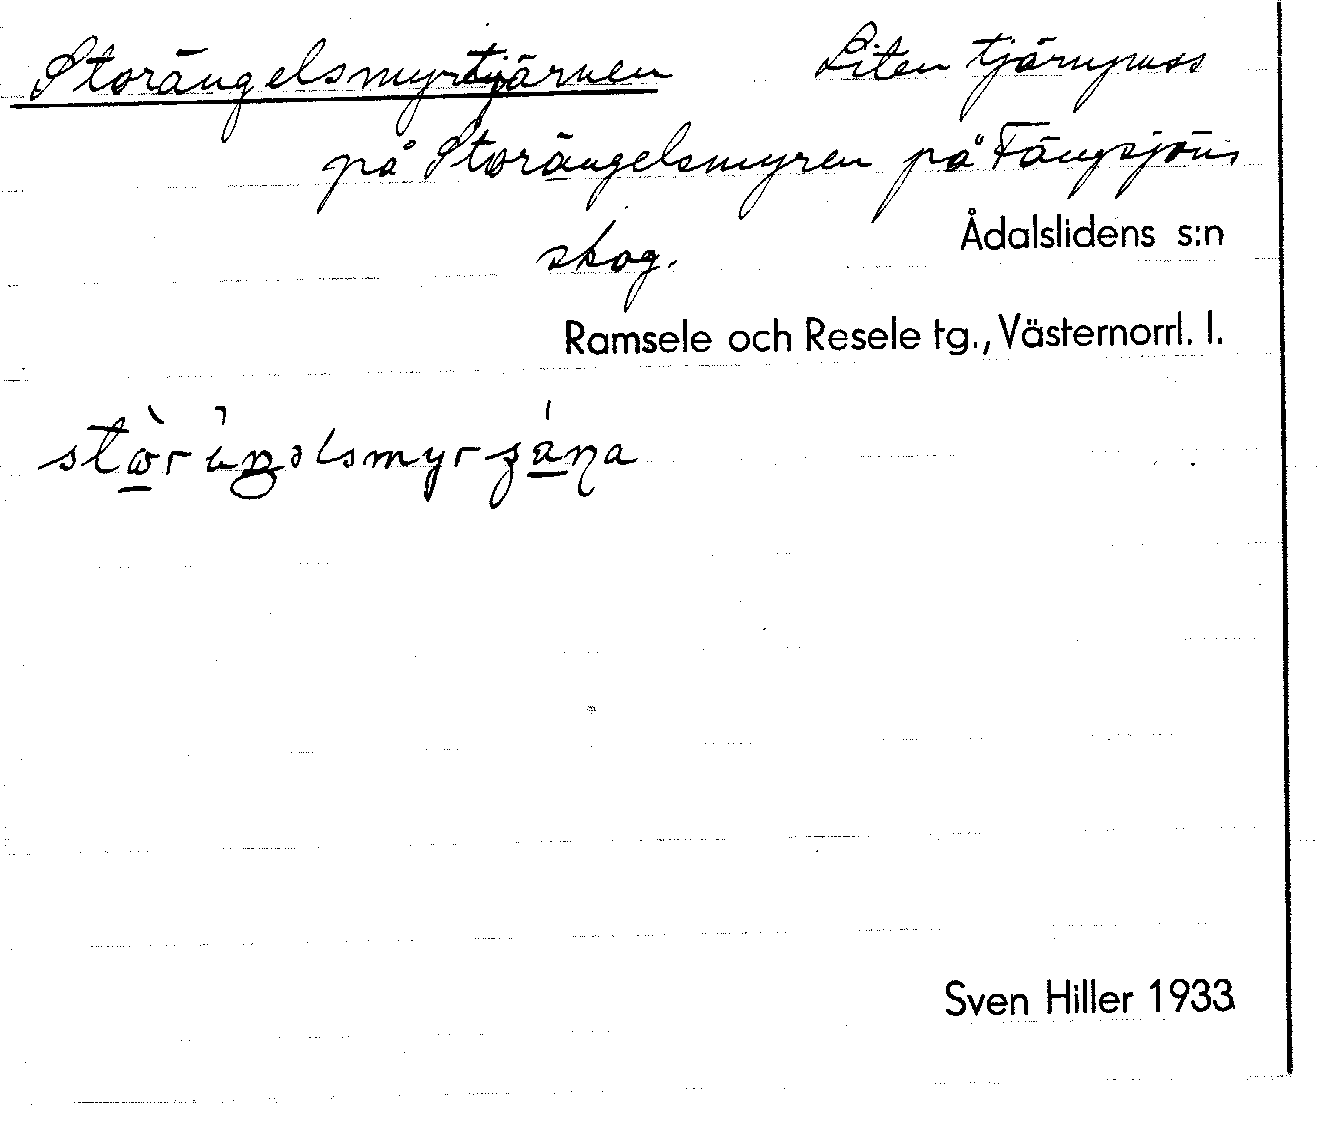 Storängelsmyrtjärnen Liten tjärnpuss
på Storängelsmyren på Fängsjöns
skog.
Ådalslidens s:n
Ramsele och Resele tg., Västernorrl. l.
Sven Hiller 1933